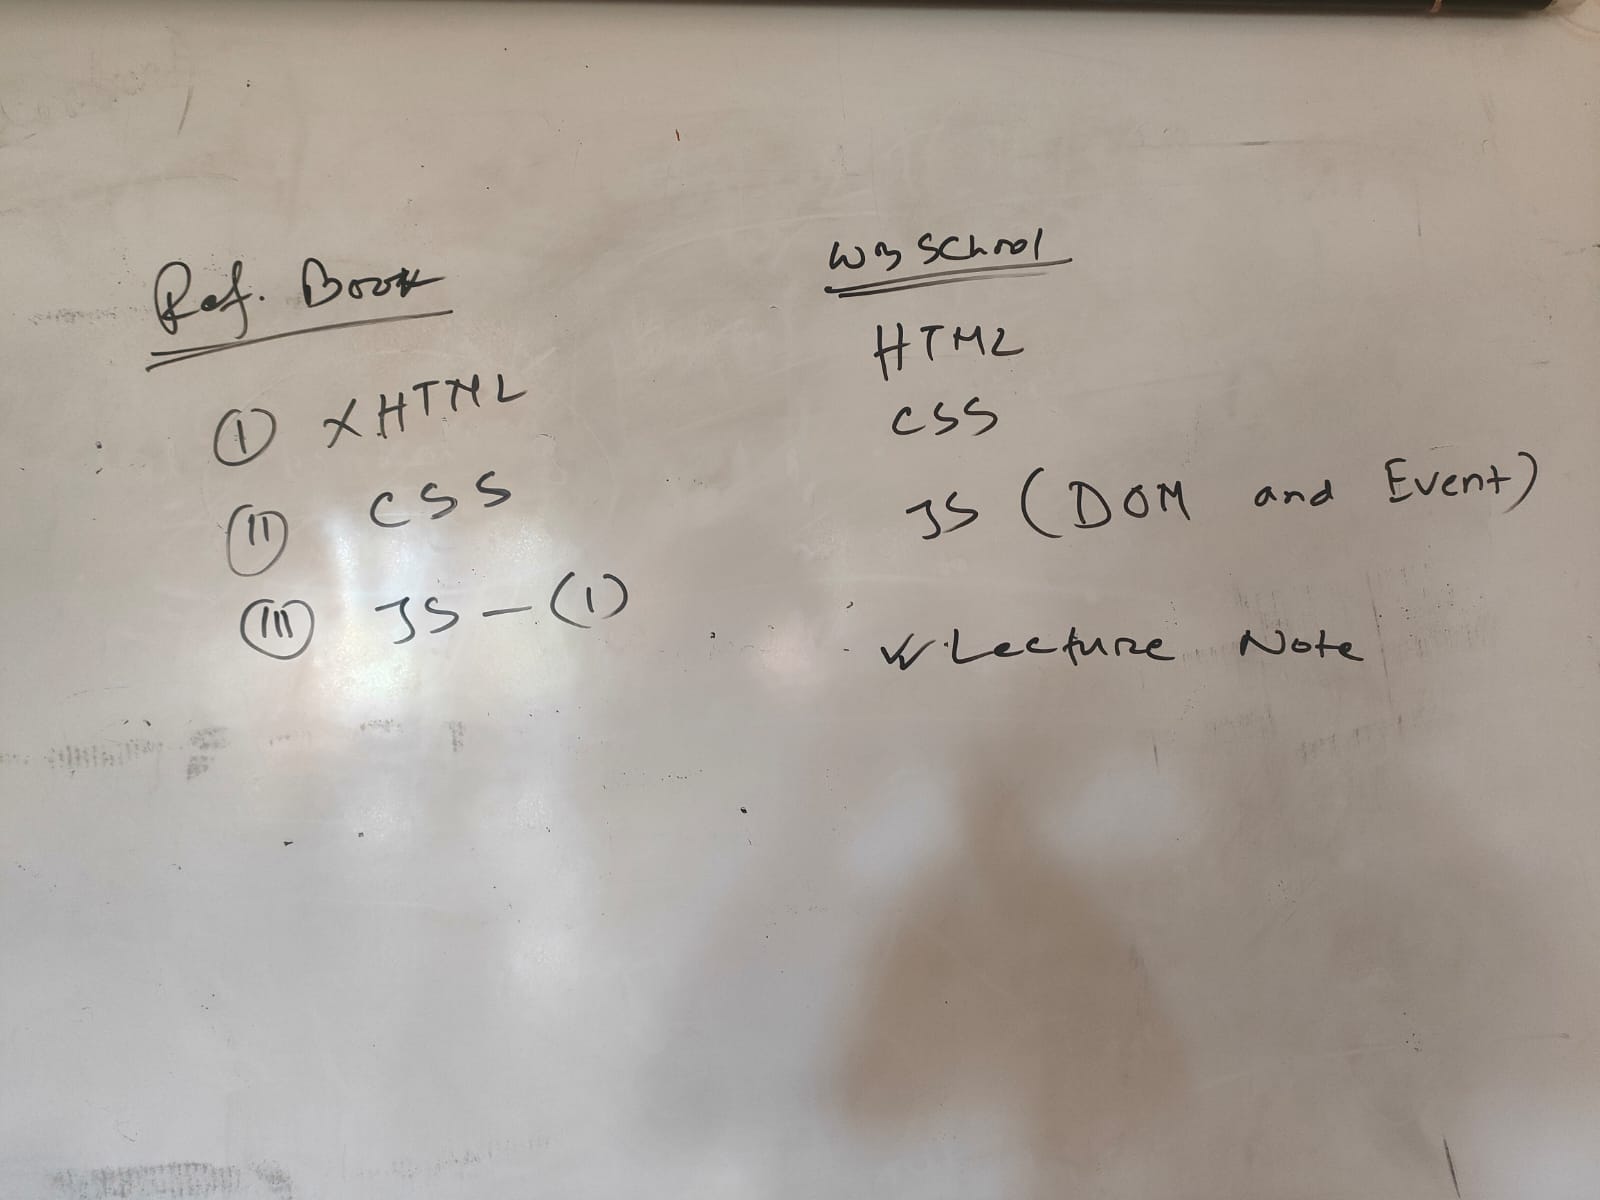 Ref. Book
(I) XHTML
(II) CSS
(III) JS - (1)
W3 School
HTML
CSS
JS (DOM and Event)
✓ Lecture Note